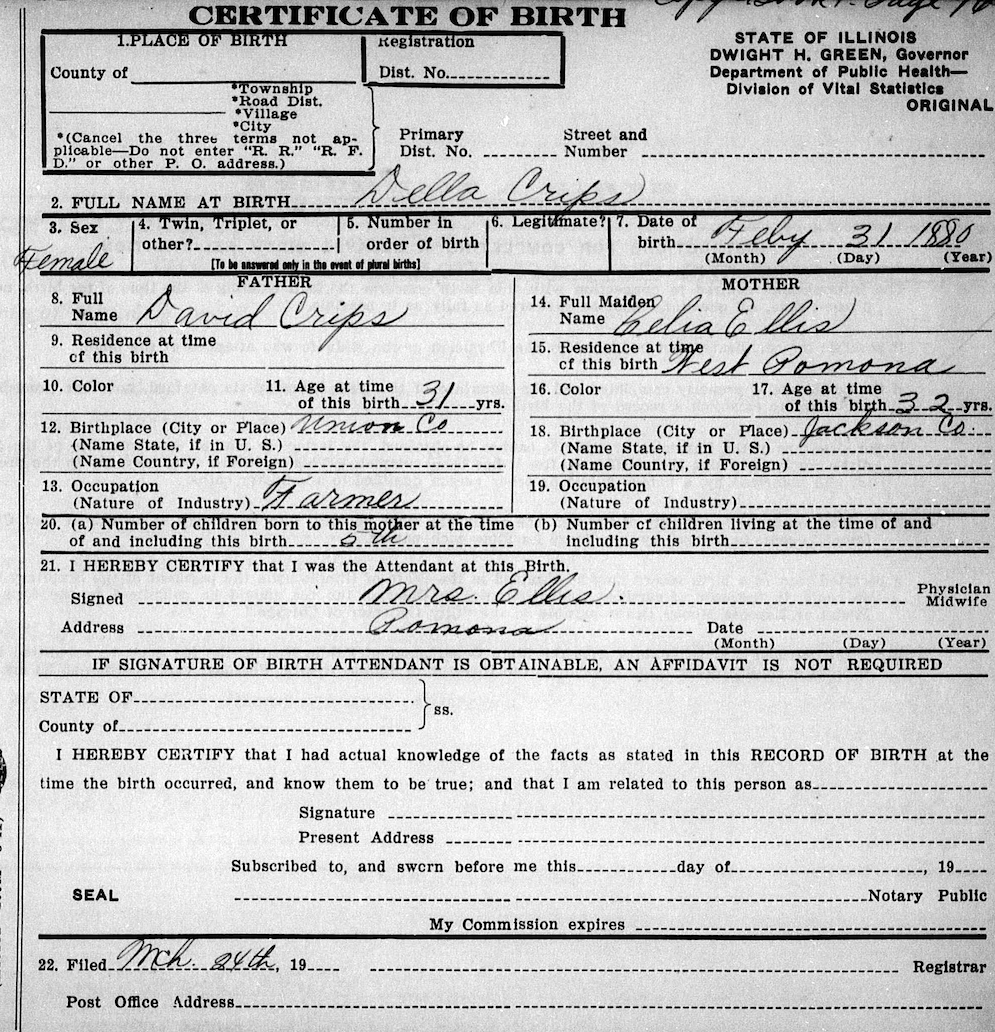 Copy Book 1. Page
CERTIFICATE OF BIRTH
STATE OF ILLINOIS
DWIGHT H. GREEN, Governor
Department of Public Health—
Division of Vital Statistics
ORIGINAL
1. PLACE OF BIRTH
County of
Registration
Dist. No.
*Township
*Road Dist.
*Village
*City
*(Cancel the three terms not ap-
plicable—Do not enter "R. R." "R. F.
D." or other P. O. address.)
Primary
Dist. No.
Street and
Number
2. FULL NAME AT BIRTH Della Crips
3. Sex
Female
4. Twin, Triplet, or
other?
5. Number in
order of birth
[To be answered only in the event of plural births]
6. Legitimate?
7. Date of
birth Feby 31 1880
(Month) (Day) (Year)
FATHER
8. Full
Name David Crips
9. Residence at time
of this birth
10. Color
11. Age at time
of this birth 31 yrs.
12. Birthplace (City or Place) Union Co
(Name State, if in U. S.)
(Name Country, if Foreign)
13. Occupation
(Nature of Industry) Farmer
MOTHER
14. Full Maiden
Name Celia Ellis
15. Residence at time
of this birth West Pomona
16. Color
17. Age at time
of this birth 32 yrs.
18. Birthplace (City or Place) Jackson Co.
(Name State, if in U. S.)
(Name Country, if Foreign)
19. Occupation
(Nature of Industry)
20. (a) Number of children born to this mother at the time
of and including this birth 5th
(b) Number of children living at the time of and
including this birth
21. I HEREBY CERTIFY that I was the Attendant at this Birth.
Signed Mrs. Ellis.
Physician
Midwife
Address Pomona
Date
(Month) (Day) (Year)
IF SIGNATURE OF BIRTH ATTENDANT IS OBTAINABLE, AN AFFIDAVIT IS NOT REQUIRED
STATE OF
County of
ss.
I HEREBY CERTIFY that I had actual knowledge of the facts as stated in this RECORD OF BIRTH at the
time the birth occurred, and know them to be true; and that I am related to this person as
Signature
Present Address
Subscribed to, and sworn before me this day of , 19
SEAL
Notary Public
My Commission expires
22. Filed Mch. 24th, 19
Registrar
Post Office Address